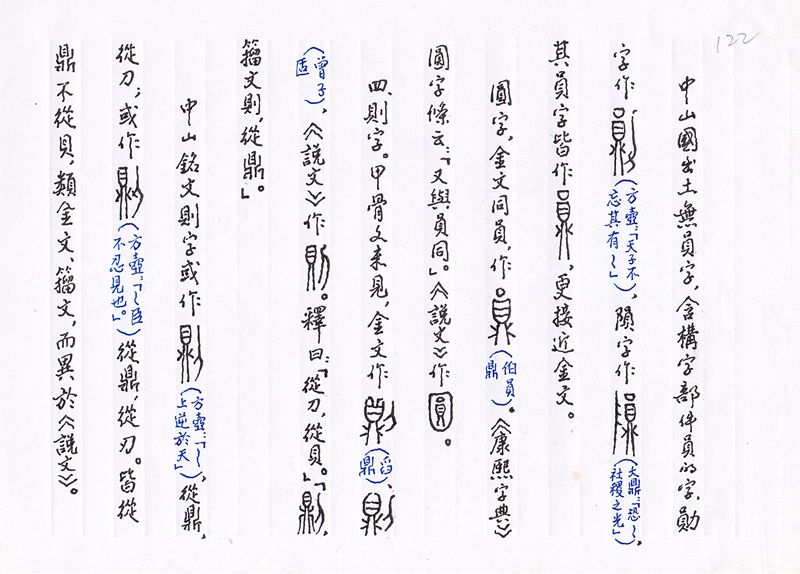 122
中山國出土無員字,含構字部件員的字,勛
字作(方壺:「天子不忘其有~」),隕字作(大鼎:「恐~社稷之光」),
其員字皆作,更接近金文。
圓字,金文同員,作(伯員鼎)。《康熙字典》
圓字條云:「又與員同」。《說文》作。
四、則字。甲骨文未見,金文作(㕣鼎)、
(曾子𠤳),《說文》作。釋曰:「從刀,從貝。」「,
籀文則,從鼎。」
中山銘文則字或作(方壺:「~上逆於天」),從鼎,
從刀;或作(方壺:「~臣不忍見也。」)從鼎,從刃。皆從
鼎不從貝,類金文、籀文,而異於《說文》。